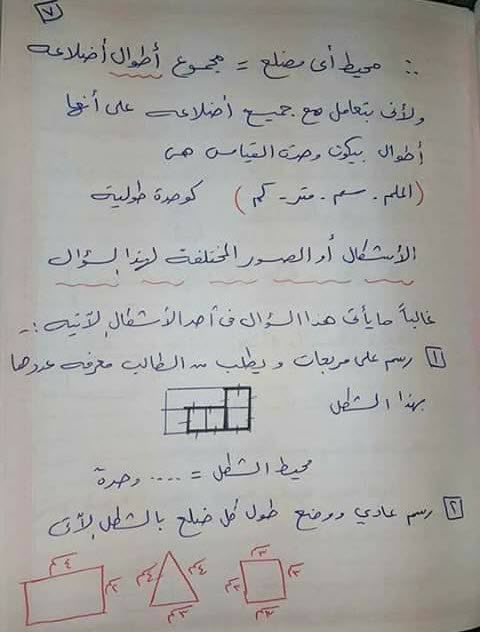 ٧
∴ محيط أى مضلع = مجموع أطوال أضلاعه
ولأنى بتعامل مع جميع أضلاعه على أنها
أطوال بيكون وحدة القياس هى
(الملم . سم . متر - كم) كوحدة طولية
الأشكال أو الصور المختلفة لهذا السؤال
غالباً ما يأتى هذا السؤال فى أحد الأشكال الآتية :-
١ رسم على مربعات ويطلب من الطالب معرفة عددها
بهذا الشكل
محيط الشكل = .... وحدة
٢ رسم عادي ووضع طول كل ضلع بالشكل الآتى
٤سم ٢سم
٤سم ٤سم ٣سم
٣سم ٣سم ٣سم ٣سم